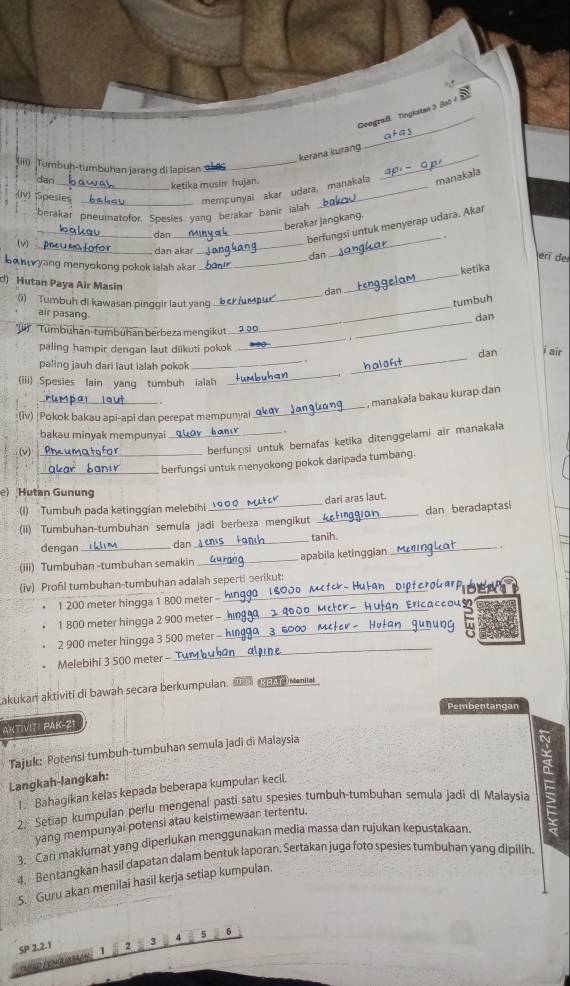 Geografi Tingkatan 2 Bab 4
(iii) Tumbuh-tumbuhan jarang di lapisan kerana kurang atas
dari bawah ketika musim hujan.
(iv) Spesies bakau mempunyai akar udara, manakala api - api
berakar pneumatofor. Spesies yang berakar banir ialah bakau manakala
bakau dan minyak berakar jangkang.
(v) pneumatofor dan akar jangkang berfungsi untuk menyerap udara. Akar
banir yang menyokong pokok ialah akar banir dan jangkar.
d) Hutan Paya Air Masin
(i) Tumbuh di kawasan pinggir laut yang berlumpur dan tenggelam ketika
air pasang.
Tumbuhan-tumbuhan berbeza mengikut zoo tumbuh
paling hampir dengan laut diikuti pokok , dan
paling jauh dari laut ialah pokok .
(iii) Spesies lain yang tumbuh ialah tumbuhan, halofit dan
rumpai laut.
(iv) Pokok bakau api-api dan perepat mempunyai akar jangkang, manakala bakau kurap dan
bakau minyak mempunyai akar banir.
(v) Pneumatofor berfungsi untuk bernafas ketika ditenggelami air manakala
akar banir berfungsi untuk menyokong pokok daripada tumbang.
eri de
i air
e) Hutan Gunung
(i) Tumbuh pada ketinggian melebihi 1000 meter dari aras laut.
(ii) Tumbuhan-tumbuhan semula jadi berbeza mengikut ketinggian dan beradaptasi
dengan iklim dan jenis tanih tanih.
(iii) Tumbuhan -tumbuhan semakin kurang apabila ketinggian Meningkat.
(iv) Profil tumbuhan-tumbuhan adalah seperti berikut:
• 1 200 meter hingga 1 800 meter – hingga 18000 Meter - Hutan Dipterokarp
• 1 800 meter hingga 2 900 meter – hingga 29000 Meter - Hutan Ericaceous
• 2 900 meter hingga 3 500 meter – hingga 35000 Meter - Hutan gunung
• Melebihi 3 500 meter – Tumbuhan alpine
CETUS
Lakukan aktiviti di bawah secara berkumpulan. KBAT Menilai
AKTIVITI PAK-21
Pembentangan
Tajuk: Potensi tumbuh-tumbuhan semula jadi di Malaysia
Langkah-langkah:
1. Bahagikan kelas kepada beberapa kumpulan kecil.
2. Setiap kumpulan perlu mengenal pasti satu spesies tumbuh-tumbuhan semula jadi di Malaysia
yang mempunyai potensi atau keistimewaan tertentu.
3. Cari maklumat yang diperlukan menggunakan media massa dan rujukan kepustakaan.
4. Bentangkan hasil dapatan dalam bentuk laporan. Sertakan juga foto spesies tumbuhan yang dipilih.
5. Guru akan menilai hasil kerja setiap kumpulan.
AKTIVITI PAK-21
SP 2.2.1
TAHAP PENGUASAAN: 1 2 3 4 5 6